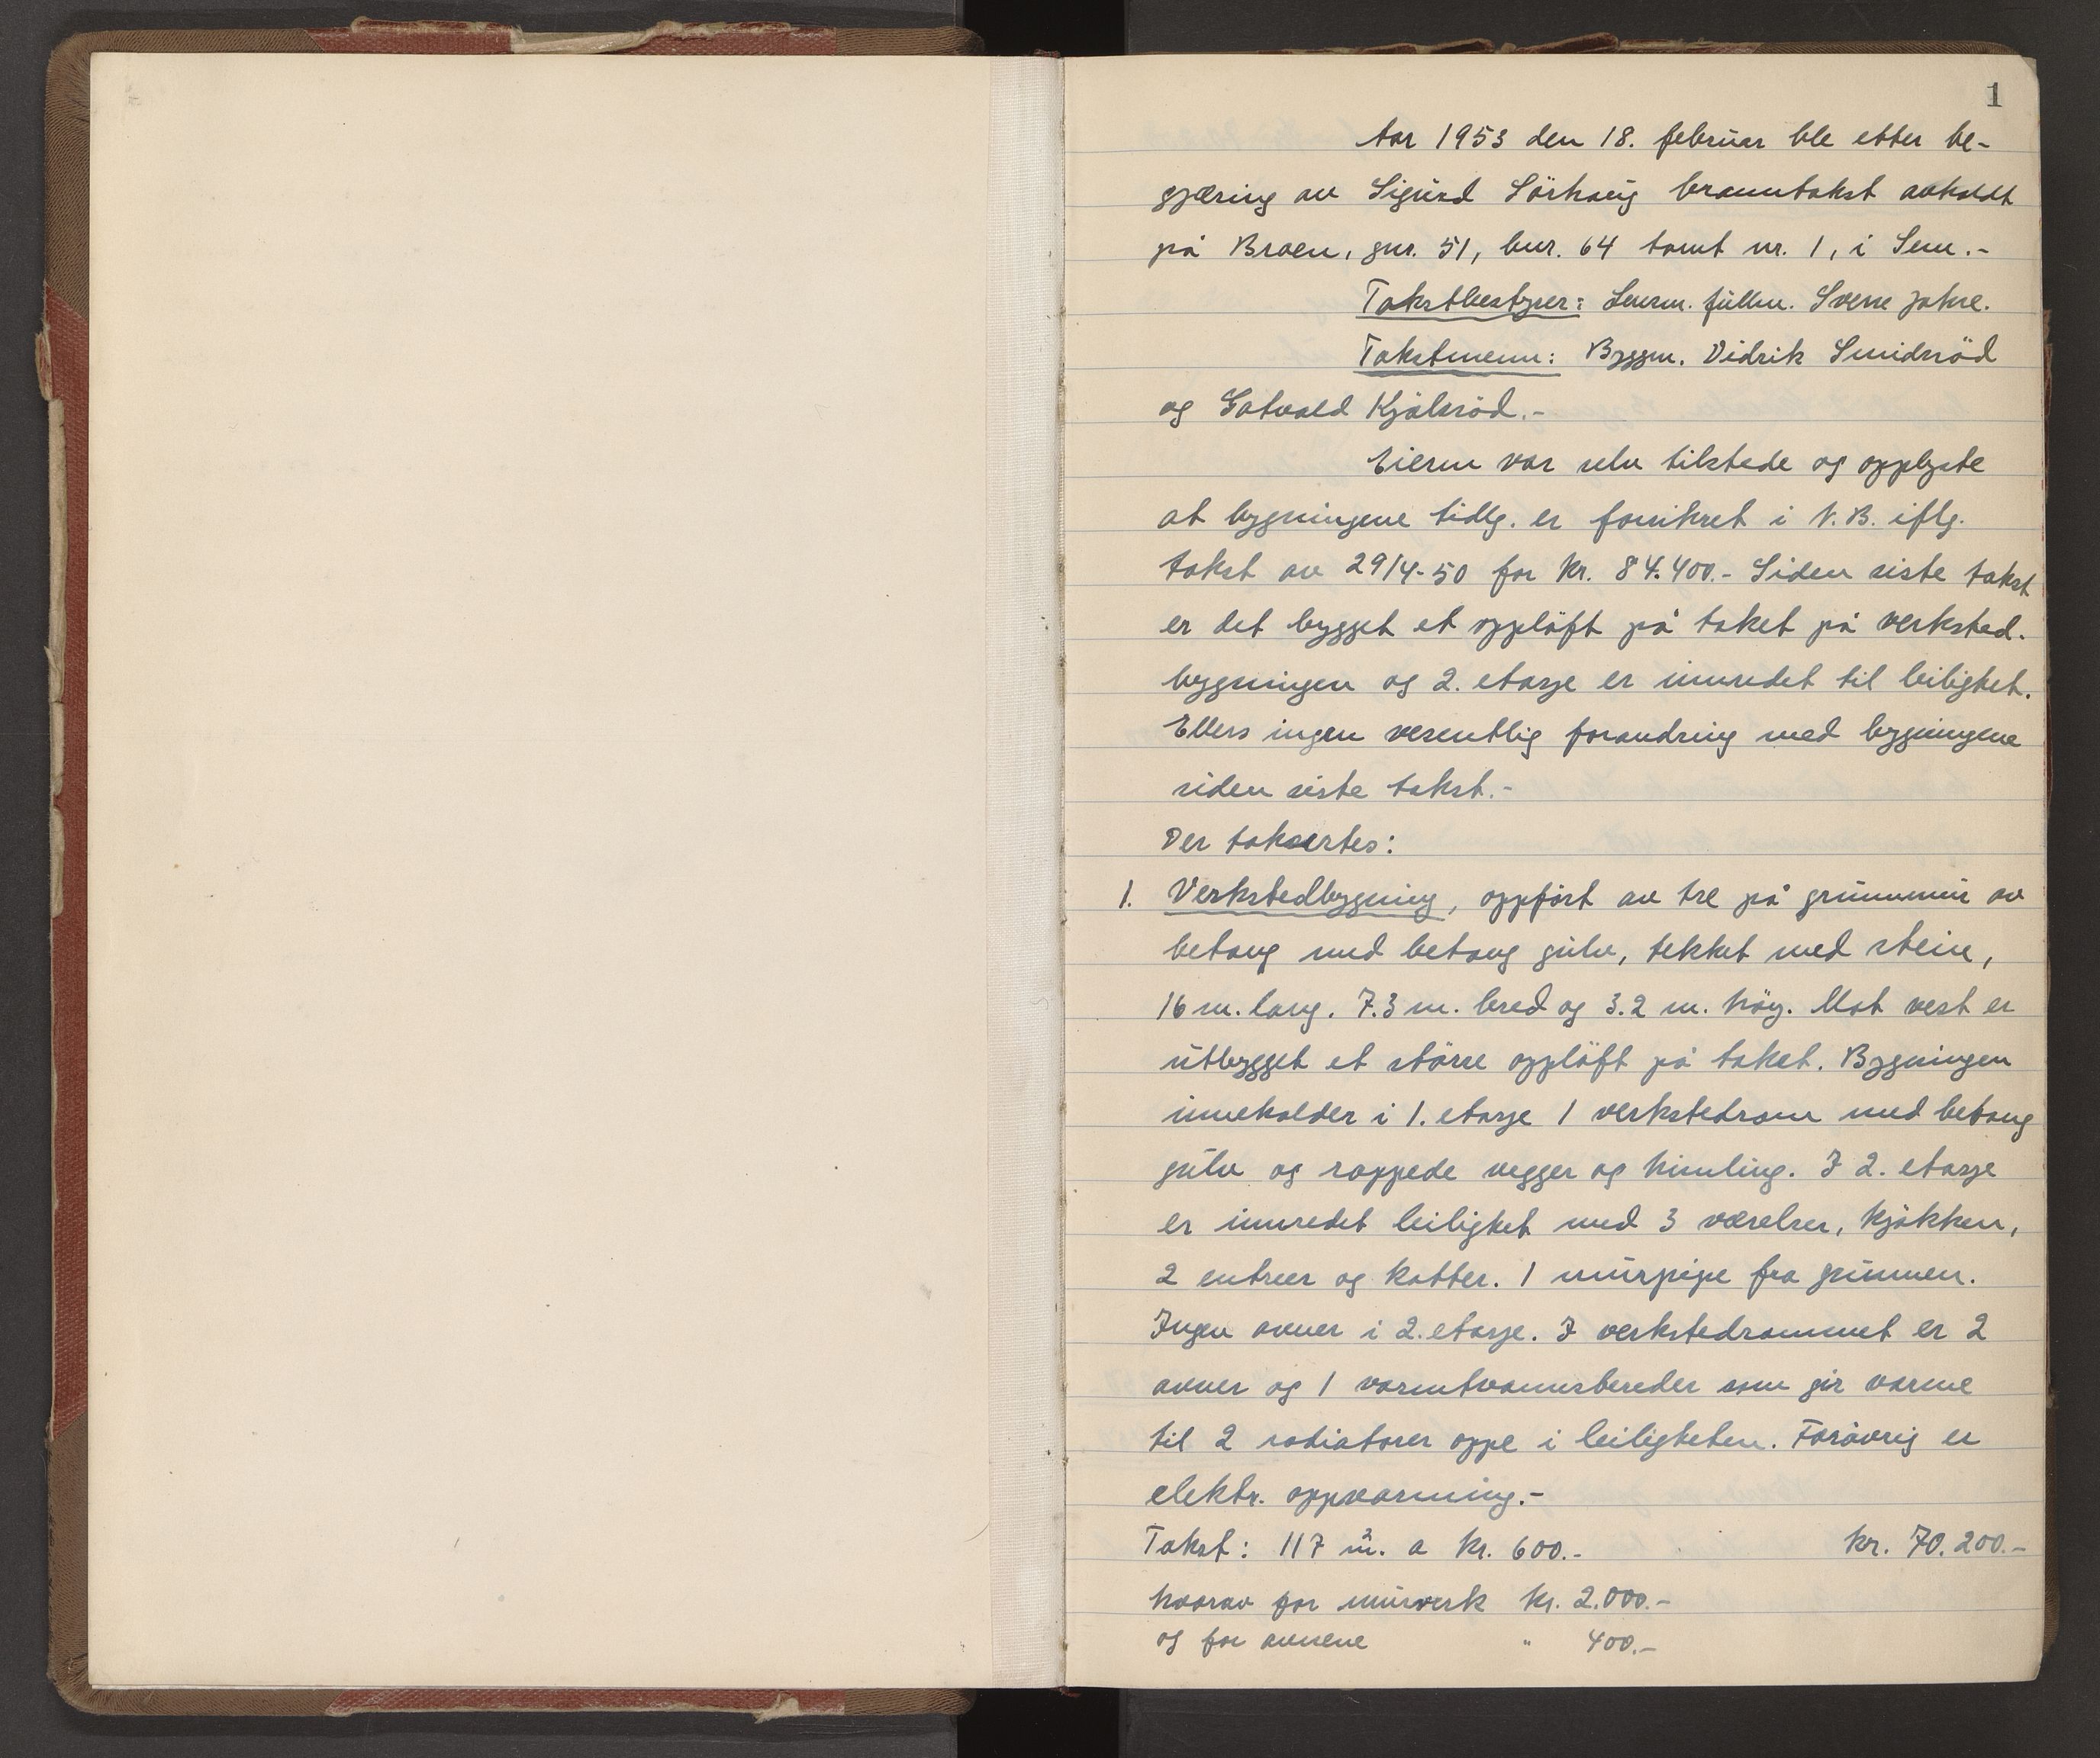 1
År 1953 den 18. februar ble etter be-
gjæring av Sigurd Sörhaug branntakst avholdt
på Broen, gnr. 51, bnr. 64 tomt nr. 1, i Sem.-
Takstbestyrer: Lensm. fullm. Sverre Jahre.
Takstmenn: Byggm. Didrik Smidsröd
og Gotvald Kjölsröd.-
Eieren var selv tilstede og opplyste
at bygningene tidlg. er forsikret i N.B. iflg.
takst av 29/4-50 for kr. 84.400.- Siden siste takst
er det bygget et opplöft på taket på verksted.
bygningen og 2. etasje er innredet til leilighet.
Ellers ingen vesentlig forandring med bygningene
siden siste takst.-
Der takseertes:
1. Verkstedbygning, oppfört av tre på grunnmur av
betong med betong gulv, tekket med stein,
16 m. lang. 7.3 m. bred og 3.2 m. höy. Mot vest er
utbygget et större opplöft på taket. Bygningen
inneholder i 1. etasje 1 verkstedrom med betong
gulv og rappede vegger og himling. I 2. etasje
er innredet leilighet med 3 værelser, kjökken,
2 entreer og kott­er. 1 murpipe fra grunnen.
Ingen ovner i 2. etasje. I verkstedrommet er 2
ovner og 1 varmtvannsbereder som gir varme
til 2 radiatorer oppe i leiligheten. Forövrig er
elektr. oppvarming.-
Takst: 117 m². a kr. 600.- kr. 70.200.-
hvorav for murverk kr. 2.000.-
og for ovnene " 400.-